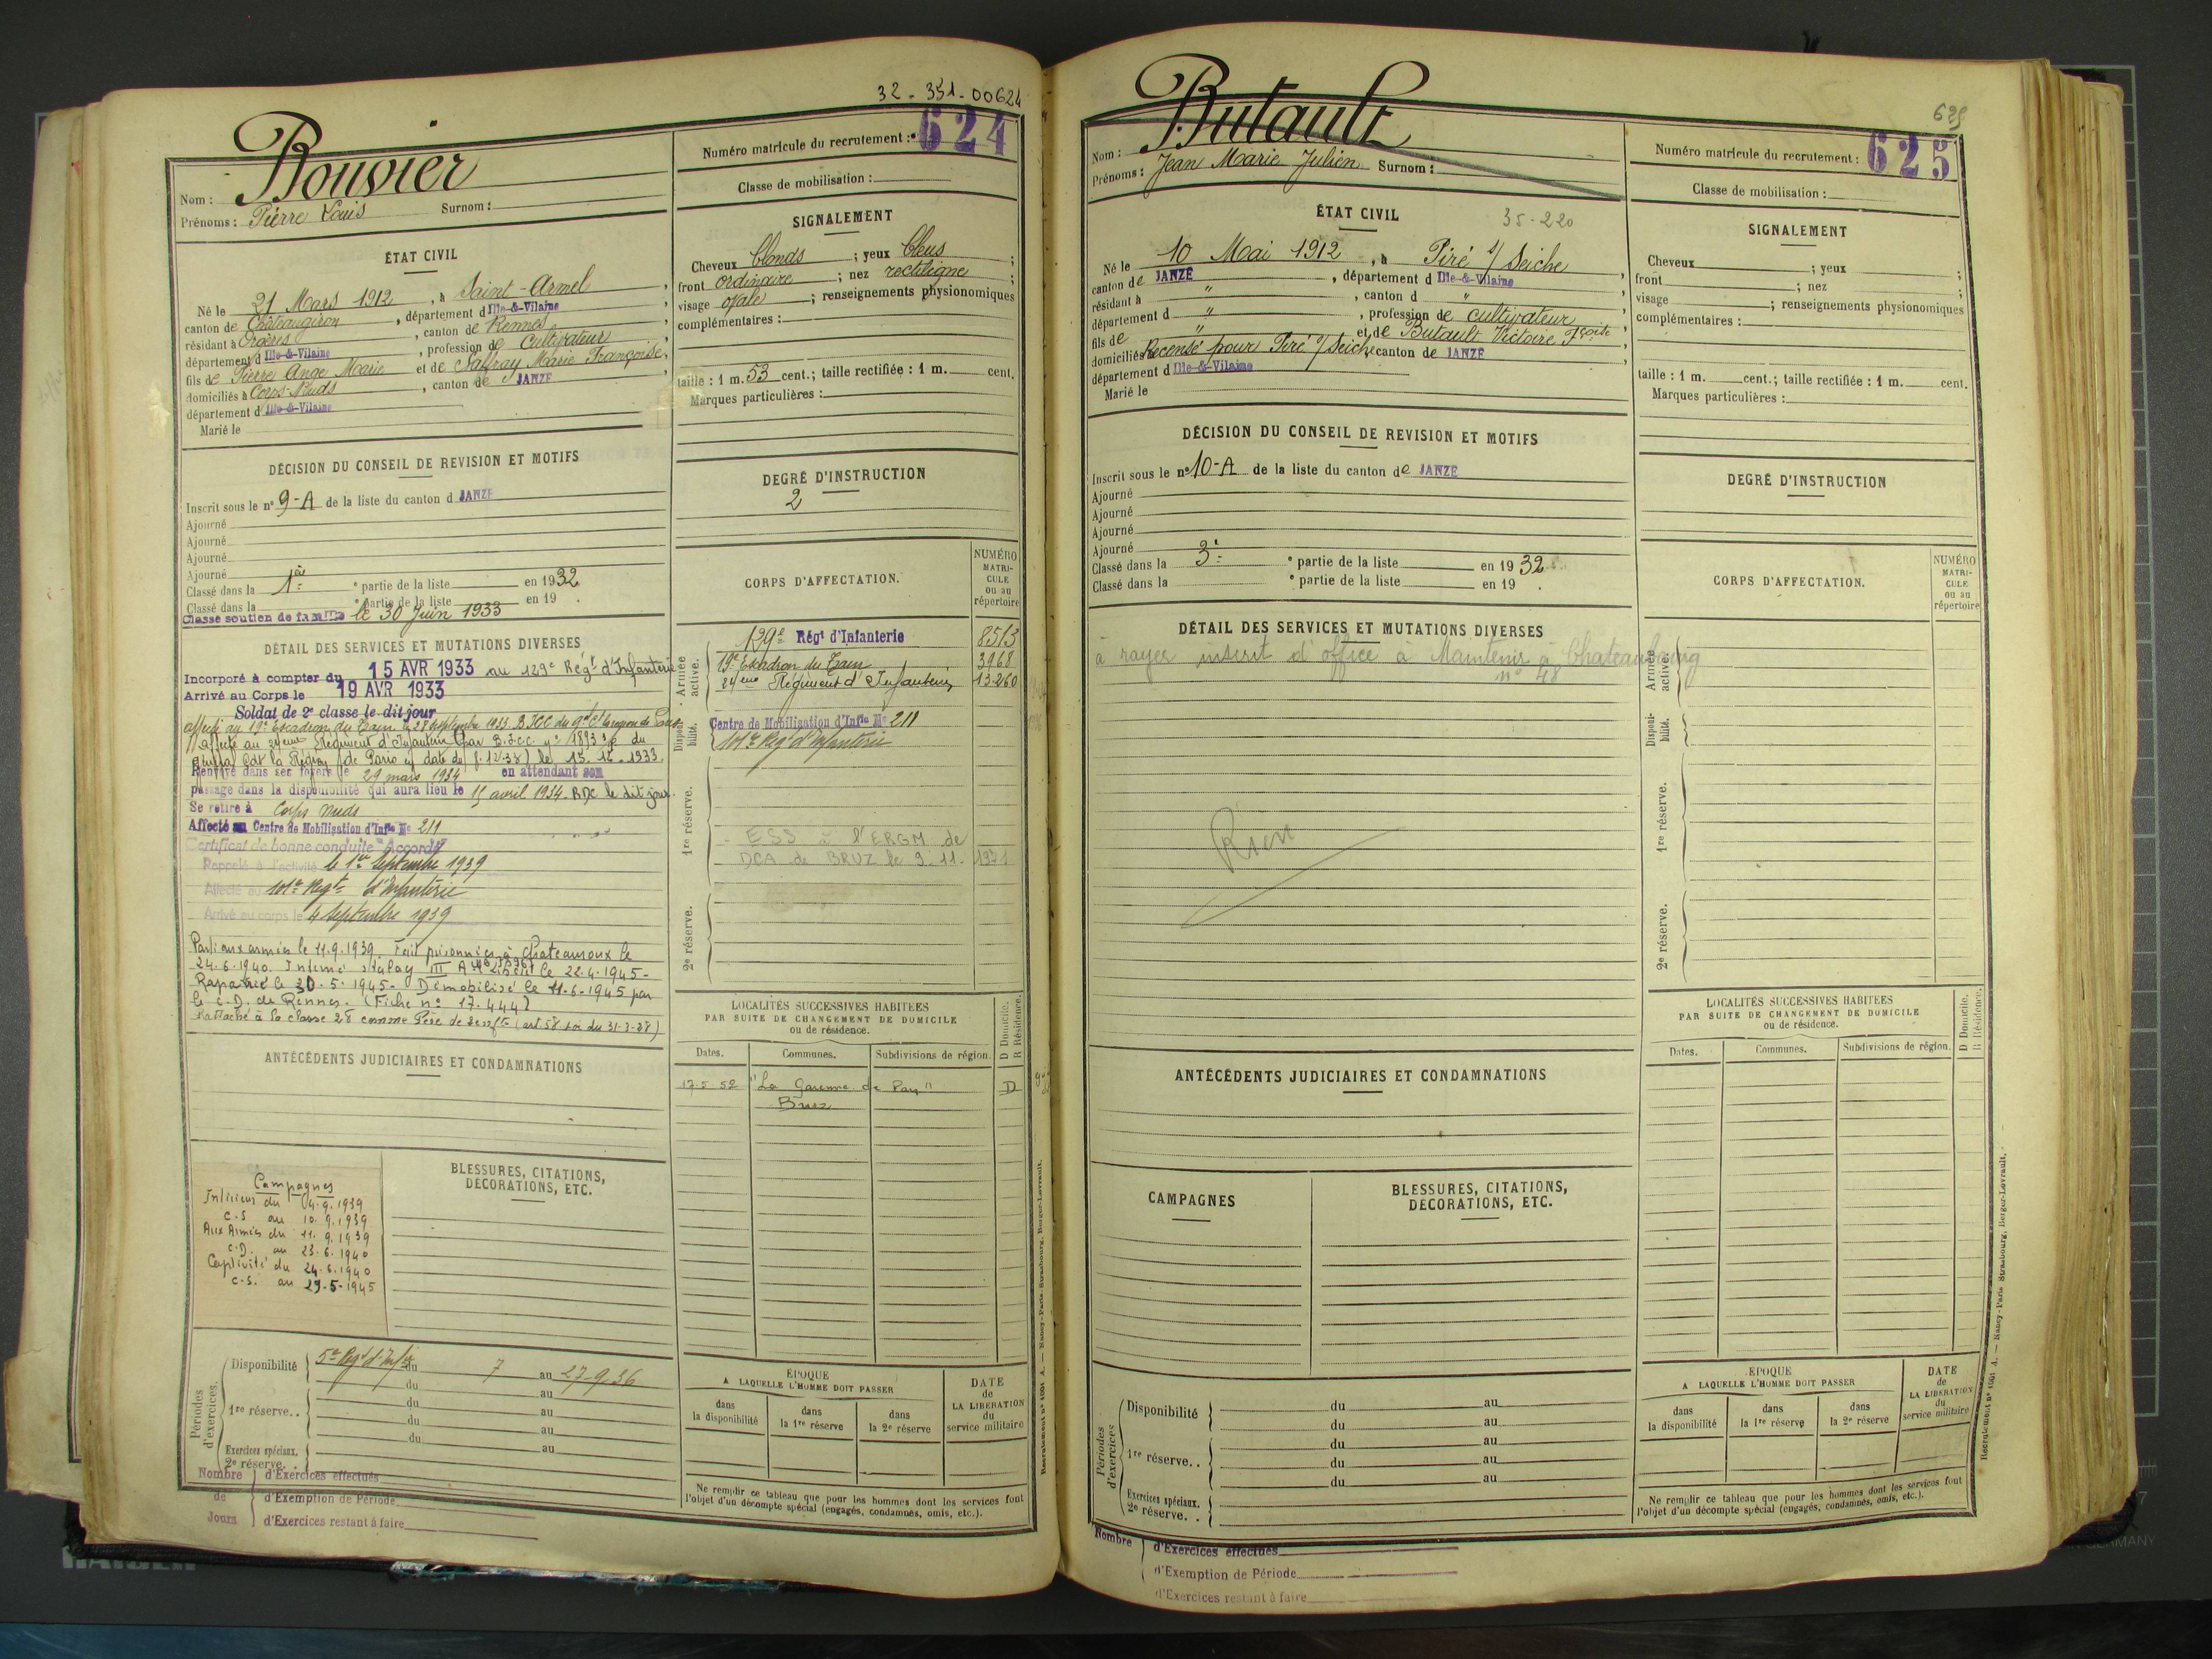 32-351-00624
Bouvier
Nom :
Prénoms : Pierre Louis Surnom :
Numéro matricule du recrutement : 624
Classe de mobilisation :
ÉTAT CIVIL
Né le 21 Mars 1912, à Saint-Armel,
canton de Châteaugiron, département d Ille-&-Vilaine
résidant à Orgères, canton de Rennes,
département d Ille-&-Vilaine, profession de Cultivateur
fils de Pierre Ange Marie et de Saffray Marie Françoise,
domiciliés à Corps-Nuds, canton de JANZÉ
département d Ille-&-Vilaine
Marié le
SIGNALEMENT
Cheveux blonds ; yeux bleus ;
front ordinaire ; nez rectiligne ;
visage ovale ; renseignements physionomiques
complémentaires :
taille : 1 m. 53 cent.; taille rectifiée : 1 m. cent.
Marques particulières :
DÉCISION DU CONSEIL DE REVISION ET MOTIFS
Inscrit sous le n° 9-A de la liste du canton d JANZÉ
Ajourné
Ajourné
Ajourné
Ajourné
Classé dans la 1ère ° partie de la liste en 1932
Classé dans la ° partie de la liste en 19 .
Classé soutien de famille le 30 Juin 1933
DEGRÉ D'INSTRUCTION
2
DÉTAIL DES SERVICES ET MUTATIONS DIVERSES
Incorporé à compter du 15 AVR 1933 au 129e Régt d'Infanterie
Arrivé au Corps le 19 AVR 1933
Soldat de 2e classe le dit jour
Affecté au 19e Escadron du Train le 28 septembre 1933. B.I.C.C. du
affecté au 24ème Régiment d'Infanterie (par B.I.C.C. n° 18933/P du
Général Cdt la Région de Paris en date du 8.12.33) le 15.12.1933.
Renvoyé dans ses foyers le 29 mars 1934 en attendant son
passage dans la disponibilité qui aura lieu le 15 avril 1934. RDC le dit jour.
Se retire à Corps Nuds
Affecté au Centre de Mobilisation d'Infie No 211
Certificat de bonne conduite "Accordé"
Rappelé à l'activité le 1er Septembre 1939
Affecté au 101e Regt d'Infanterie
Arrivé au corps le 4 Septembre 1939
Parti aux armées le 11.9.1939. Fait prisonnier à Chateauroux le
24.6.1940. Interné stalag III A Libéré le 22.4.1945-
Rapatrié le 30.5.1945- Démobilisé le 11-6-1945 par
le C.D. de Rennes. (Fiche n° 17.444)
Rattaché à la classe 28 comme Père de 2 enfts (art. 58 Loi du 31-3-28)
CORPS D'AFFECTATION.
NUMÉRO MATRICULE ou au répertoire
Armée active.
129e Régt d'Infanterie 8513
19e Escadron du Train 3968
24ème Régiment d'Infanterie 13260
Disponibilité.
Centre de Mobilisation d'Infie No 211
101e Regt d'Infanterie
1re réserve.
ESS à l'ERGM de
DCA de BRUZ le 9.11.1951
2e réserve.
ANTÉCÉDENTS JUDICIAIRES ET CONDAMNATIONS
LOCALITÉS SUCCESSIVES HABITÉES
PAR SUITE DE CHANGEMENT DE DOMICILE
ou de résidence.
D Domicile.
R Résidence.
Dates. Communes. Subdivisions de région.
17-5 52 "La Garenne de Pan" D
Bruz
Campagnes
Intérieur du 4.9.1939
C.S au 10.9.1939
Aux Armées du 11.9.1939
C.D. au 23.6.1940
Captivité du 24.6.1940
C.S. au 29-5-1945
BLESSURES, CITATIONS,
DÉCORATIONS, ETC.
Périodes d'exercices.
Disponibilité 5e Regt d'Infie du 7 au 27-9-36
du au
1re réserve.. du au
du au
du au
Exercices spéciaux.
2e réserve. .
Nombre de Jours
d'Exercices effectués
d'Exemption de Période
d'Exercices restant à faire
ÉPOQUE
A LAQUELLE L'HOMME DOIT PASSER
dans la disponibilité
dans la 1re réserve
dans la 2e réserve
DATE de LA LIBÉRATION du service militaire
Ne remplir ce tableau que pour les hommes dont les services font
l'objet d'un décompte spécial (engagés, condamnés, omis, etc.).
Recrutement n° 1001 A. — Nancy-Paris-Strasbourg, Berger-Levrault.
625
Butault
Nom :
Prénoms : Jean Marie Julien Surnom :
Numéro matricule du recrutement : 625
Classe de mobilisation :
ÉTAT CIVIL
35-220
Né le 10 Mai 1912, à Piré s/ Seiche,
canton de JANZÉ, département d Ille-&-Vilaine
résidant à ", canton d ",
département d ", profession de cultivateur
fils de " et de Butault Victoire Fçoise,
domiciliés Recensé pour Piré s/ Seiche canton de JANZÉ,
département d Ille-&-Vilaine
Marié le
SIGNALEMENT
Cheveux ; yeux ;
front ; nez ;
visage ; renseignements physionomiques
complémentaires :
taille : 1 m. cent.; taille rectifiée : 1 m. cent.
Marques particulières :
DÉCISION DU CONSEIL DE REVISION ET MOTIFS
Inscrit sous le n° 10-A de la liste du canton de JANZÉ
Ajourné
Ajourné
Ajourné
Ajourné
Classé dans la 3e ° partie de la liste en 1932
Classé dans la ° partie de la liste en 19 .
DEGRÉ D'INSTRUCTION
DÉTAIL DES SERVICES ET MUTATIONS DIVERSES
à rayer inscrit d'office à Maintenir à Chateaubourg
n° 48
Rien
CORPS D'AFFECTATION.
NUMÉRO MATRICULE ou au répertoire
Armée active.
Disponibilité.
1re réserve.
2e réserve.
ANTÉCÉDENTS JUDICIAIRES ET CONDAMNATIONS
LOCALITÉS SUCCESSIVES HABITÉES
PAR SUITE DE CHANGEMENT DE DOMICILE
ou de résidence.
D Domicile.
R Résidence.
Dates. Communes. Subdivisions de région.
CAMPAGNES
BLESSURES, CITATIONS,
DÉCORATIONS, ETC.
Périodes d'exercices
Disponibilité du au
du au
1re réserve.. du au
du au
du au
Exercices spéciaux.
2e réserve. .
Nombre
d'Exercices effectués
d'Exemption de Période
d'Exercices restant à faire
ÉPOQUE
A LAQUELLE L'HOMME DOIT PASSER
dans la disponibilité
dans la 1re réserve
dans la 2e réserve
DATE de LA LIBÉRATION du service militaire
Ne remplir ce tableau que pour les hommes dont les services font
l'objet d'un décompte spécial (engagés, condamnés, omis, etc.).
Recrutement n° 1001 A. — Nancy-Paris-Strasbourg, Berger-Levrault.
GERMANY